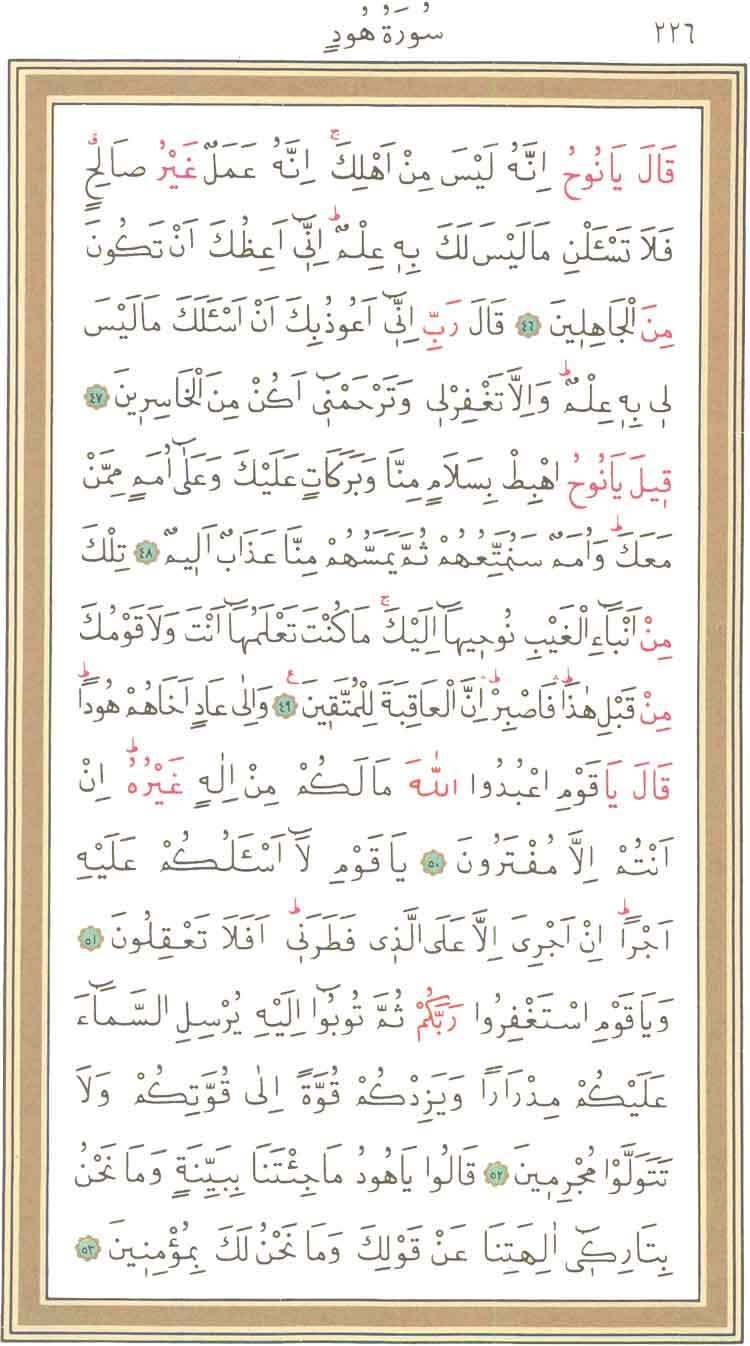 ٢٢٦ سُورَةُ هُودٍ
قَالَ يَانُوحُ اِنَّهُ لَيْسَ مِنْ اَهْلِكَۚ اِنَّهُ عَمَلٌ غَيْرُ صَالِحٍۗ
فَلَا تَسْـَٔلْنِ مَالَيْسَ لَكَ بِه۪ عِلْمٌۜ اِنّ۪ٓي اَعِظُكَ اَنْ تَكُونَ
مِنَ الْجَاهِل۪ينَ ٤٦ قَالَ رَبِّ اِنّ۪ٓي اَعُوذُبِكَ اَنْ اَسْـَٔلَكَ مَالَيْسَ
ل۪ي بِه۪ عِلْمٌۜ وَاِلَّا تَغْفِرْل۪ي وَتَرْحَمْن۪ٓي اَكُنْ مِنَ الْخَاسِر۪ينَ ٤٧
ق۪يلَ يَانُوحُ اهْبِطْ بِسَلَامٍ مِنَّا وَبَرَكَاتٍ عَلَيْكَ وَعَلٰٓى اُمَمٍ مِمَّنْ
مَعَكَۜ وَاُمَمٌ سَنُمَتِّعُهُمْ ثُمَّ يَمَسُّهُمْ مِنَّا عَذَابٌ اَل۪يمٌ ٤٨ تِلْكَ
مِنْ اَنْبَٓاءِ الْغَيْبِ نُوح۪يهَٓا اِلَيْكَۚ مَاكُنْتَ تَعْلَمُهَٓا اَنْتَ وَلَا قَوْمُكَ
مِنْ قَبْلِ هٰذَاۜۛ فَاصْبِرْۜۛ اِنَّ الْعَاقِبَةَ لِلْمُتَّق۪ينَ ٤٩ ع وَاِلٰى عَادٍ اَخَاهُمْ هُودًاۜ
قَالَ يَا قَوْمِ اعْبُدُوا اللّٰهَ مَالَكُمْ مِنْ اِلٰهٍ غَيْرُهُۜ اِنْ
اَنْتُمْ اِلَّا مُفْتَرُونَ ٥٠ يَا قَوْمِ لَٓا اَسْـَٔلُكُمْ عَلَيْهِ
اَجْرًاۜ اِنْ اَجْرِىَ اِلَّا عَلَى الَّذ۪ى فَطَرَن۪يۜ اَفَلَا تَعْقِلُونَ ٥١
وَيَا قَوْمِ اسْتَغْفِرُوا رَبَّكُمْ ثُمَّ تُوبُٓوا اِلَيْهِ يُرْسِلِ السَّمَٓاءَ
عَلَيْكُمْ مِدْرَارًا وَيَزِدْكُمْ قُوَّةً اِلٰى قُوَّتِكُمْ وَلَا
تَتَوَلَّوْا مُجْرِم۪ينَ ٥٢ قَالُوا يَاهُودُ مَاجِئْتَنَا بِبَيِّنَةٍ وَمَا نَحْنُ
بِتَارِك۪ٓي اٰلِهَتِنَا عَنْ قَوْلِكَ وَمَا نَحْنُ لَكَ بِمُؤْمِن۪ينَ ٥٣